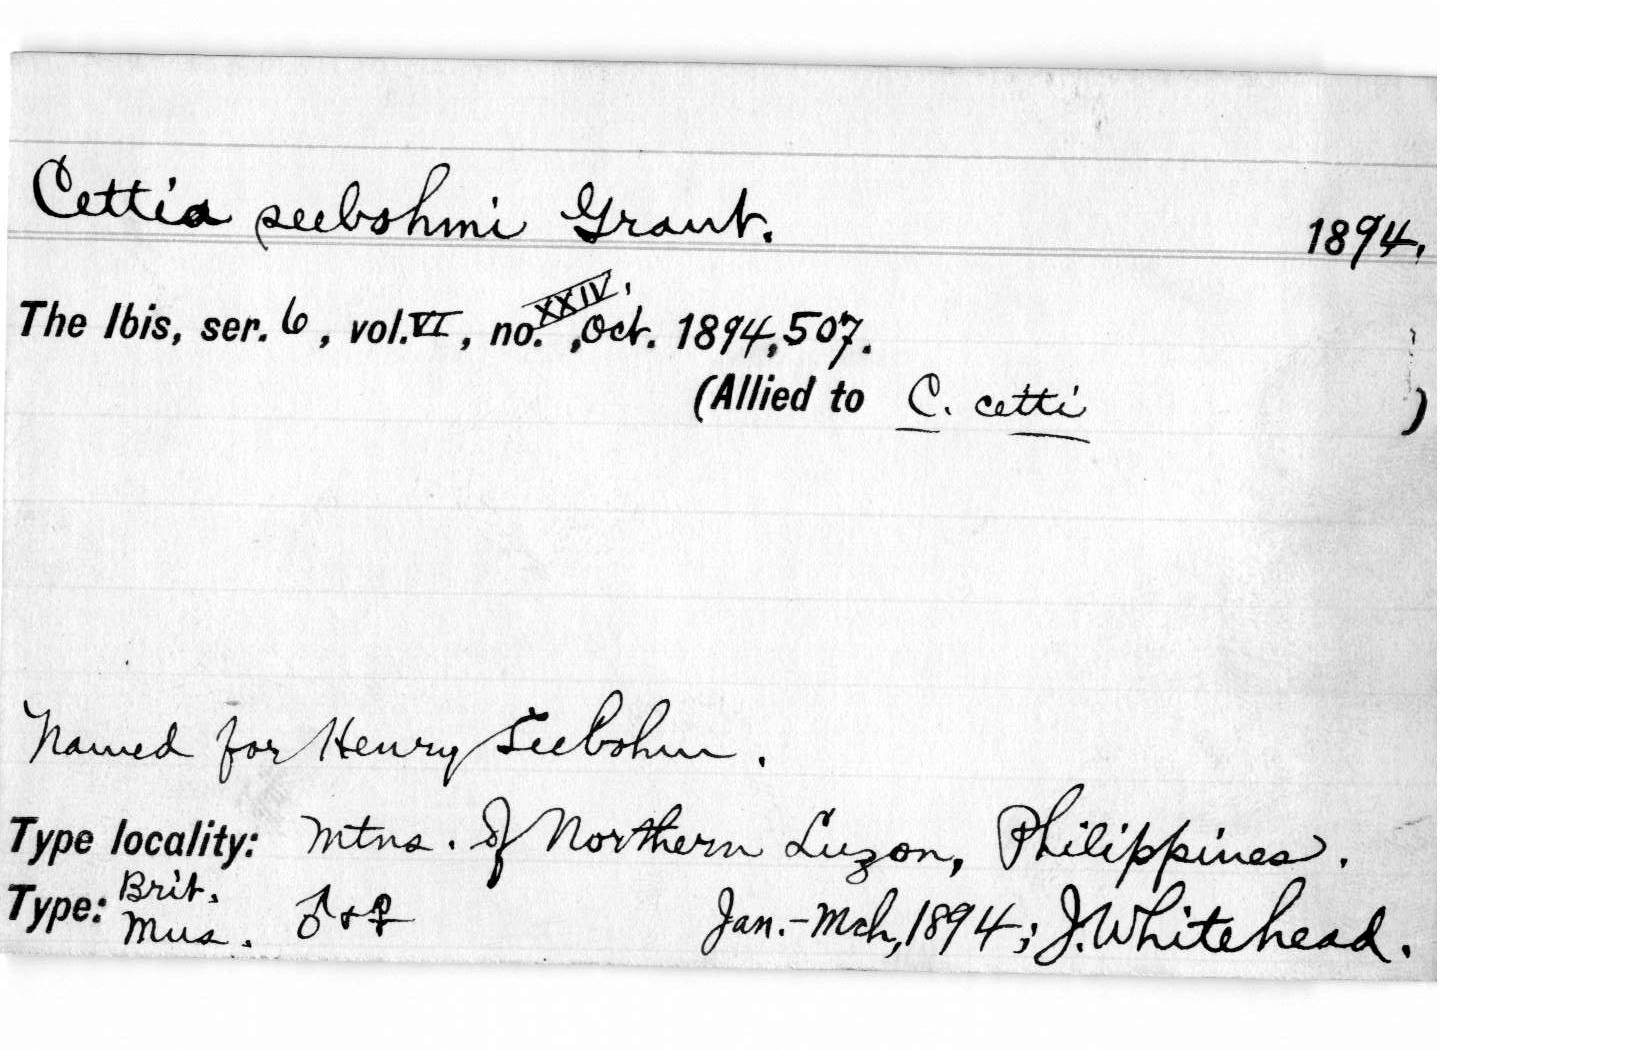 Cettia seebohmi Grant. 1894.
The Ibis, ser. 6, vol. VI, no. XXIV, Oct. 1894, 507.
(Allied to C. cetti )
Named for Henry Seebohm.
Type locality: Mtns. of Northern Luzon, Philippines.
Type: Brit. Mus. ♂ + ♀ Jan.-Mch, 1894; J. Whitehead.